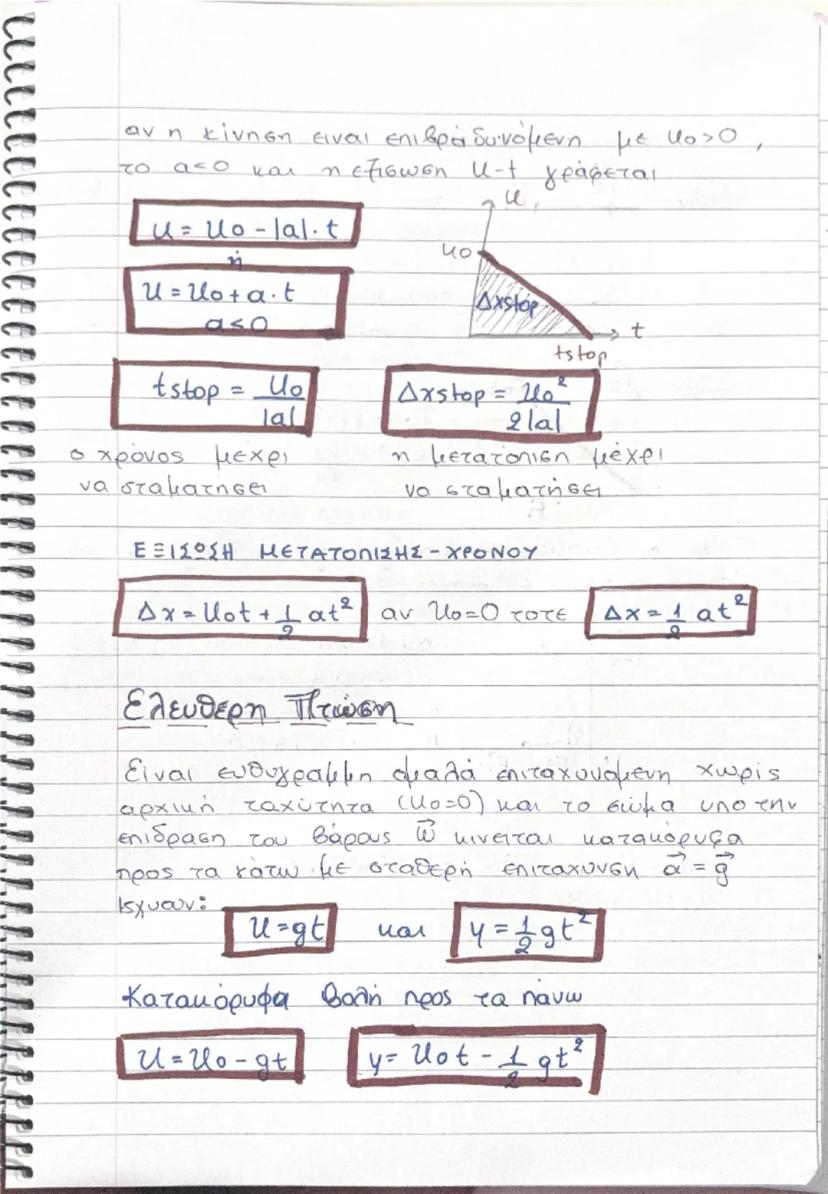 αν η κίνηση ειναι επιβραδυνόμενη με υ₀>0,
το α<0 και η εξισωση υ-t γράφεται
υ = υ₀ - |a|·t
υ
υ₀
ή
υ = υ₀ + a·t
a<0
Δxstop
t
tstop
tstop = υ₀/|a|
Δxstop = υ₀²/2|a|
ο χρόνος μεχρι
να σταματησει
η μετατόπιση μέχρι
να σταματήσει
ΕΞΙΣΩΣΗ ΜΕΤΑΤΟΠΙΣΗΣ - ΧΡΟΝΟΥ
Δx = υ₀t + 1/2 at² αν υ₀=0 τοτε Δx = 1/2 at²
Ελευθερη Πτώση
Είναι ευθυγραμμη ομαλά επιταχυνόμενη χωρίς
αρχική ταχύτητα (υ₀=0) και το σώμα υπο την
επιδραση του βάρους w⃗ κινειται κατακόρυφα
προς τα κάτω με σταθερή επιταχυνση a⃗ = g⃗
Ισχυουν:
υ=gt και y = 1/2 gt²
Κατακόρυφα βολή προς τα πάνω
υ = υ₀ - gt
y = υ₀t - 1/2 gt²